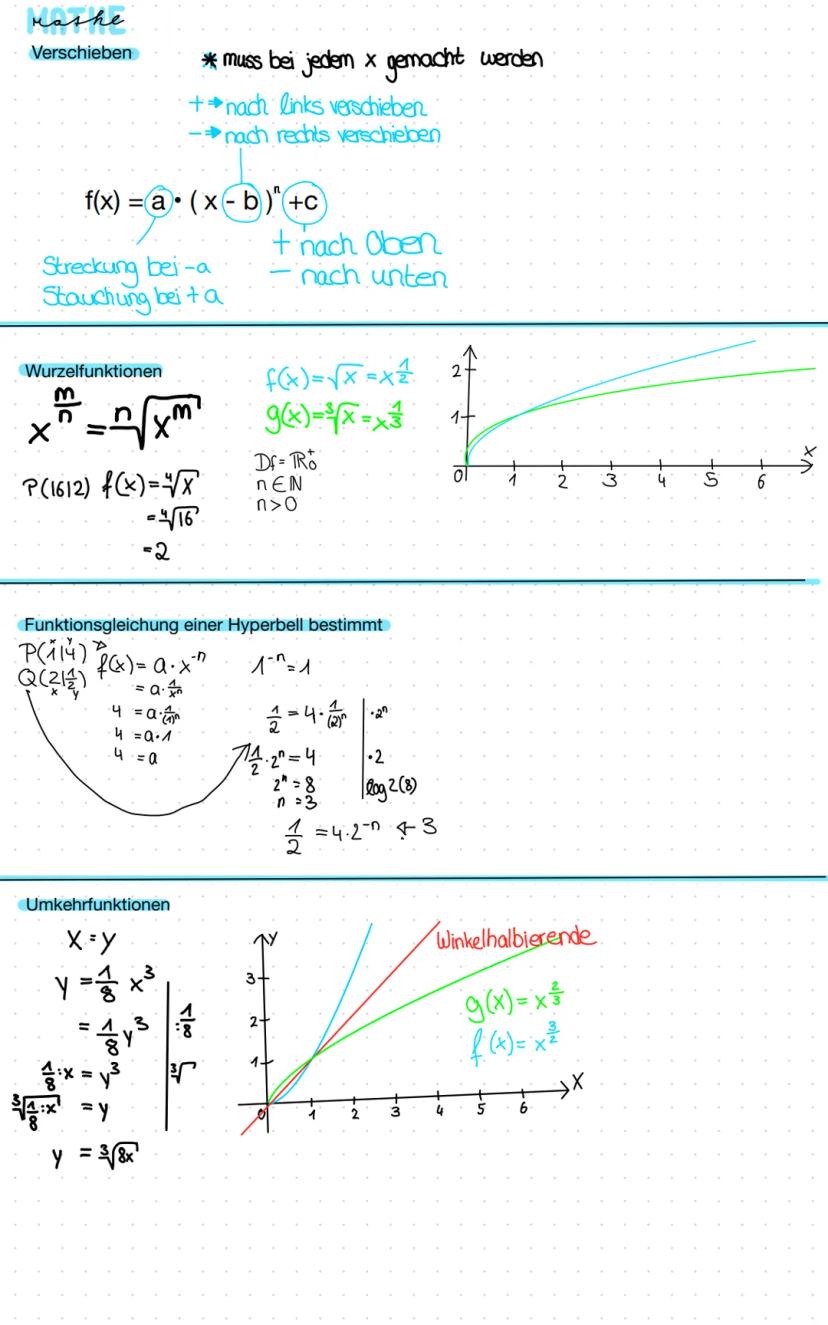 MATHE
mathe
Verschieben
* muss bei jedem x gemacht werden
+ → nach links verschieben
- → nach rechts verschieben
f(x) = a • ( x - b )ⁿ +c
Streckung bei -a
Stauchung bei + a
+ nach Oben
- nach unten
Wurzelfunktionen
x^(m/n) = ⁿ√(x^m)
P(16|2) f(x) = ⁴√x
= ⁴√16
= 2
f(x) = √x = x^(1/2)
g(x) = ³√x = x^(1/3)
Df = ℝ₀⁺
n ∈ ℕ
n > 0
2
1
0 1 2 3 4 5 6
x
Funktionsgleichung einer Hyperbell bestimmt
x y
P(1|4)
Q(2|1/2)
x y
f(x) = a · x^-n
= a · 1/xⁿ
4 = a · 1/(1)ⁿ
4 = a · 1
4 = a
1^-n = 1
1/2 = 4 · 1/(2)ⁿ | · 2ⁿ
1/2 · 2ⁿ = 4 | · 2
2ⁿ = 8 | log2(8)
n = 3
1/2 = 4 · 2^-n ← 3
Umkehrfunktionen
X = y
y = 1/8 x³
= 1/8 y³ | : 1/8
1/8 : x = y³ | ³√
³√(1/8 : x) = y
y = ³√(8x)
y
3
2
1
0 1 2 3 4 5 6
X
Winkelhalbierende
g(x) = x^(2/3)
f(x) = x^(3/2)